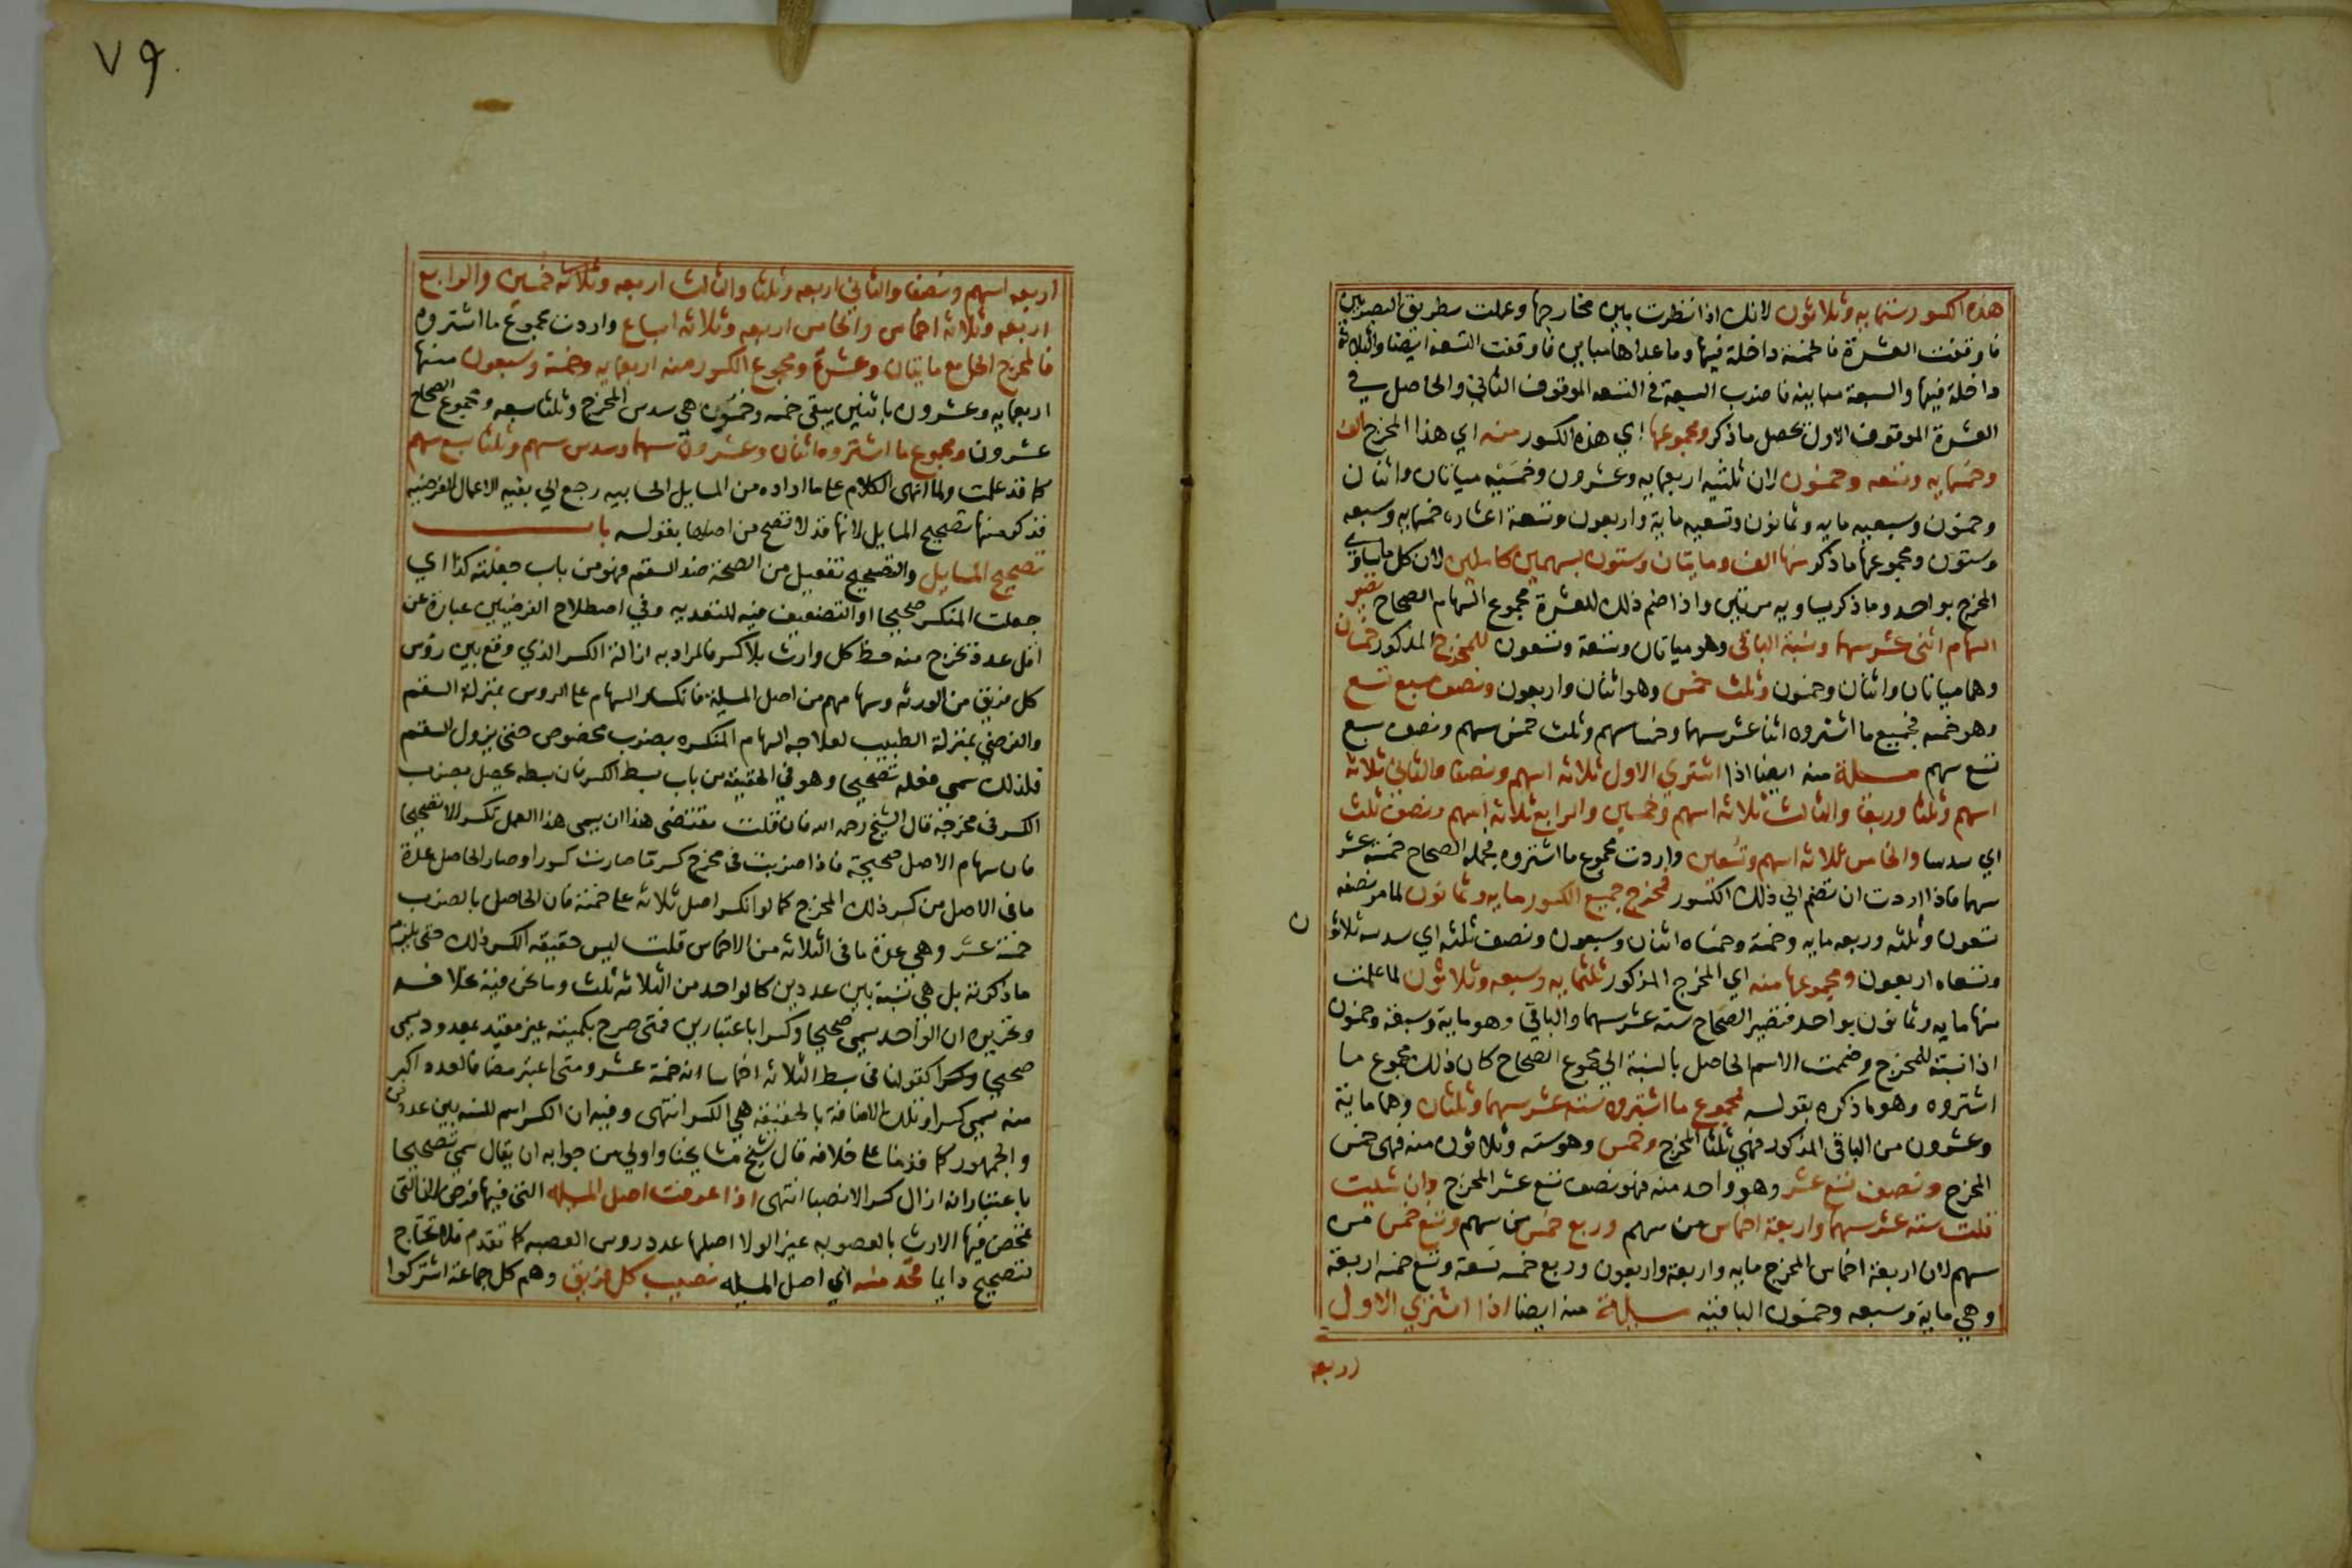 هذه الكسور ستمايه وثلاثون لانك اذا نظرت بين مخارجها وعملت بطريق البصريين
فاوقفت العشرة فالخمسة داخلة فيها وما عداها مباين فاوقفت التسعه ايضا والثلاثة
داخلة فيها والسبعة مباينه فاضرب السبعة في التسعه الموقوف الثاني والحاصل في
العشرة الموقوف الاول يحصل ماذكر ومجموعها اي هذه الكسور منه اي هذا المخرج الف
وخمسمايه وتسعه وخمسون لان ثلثيه اربعمايه وعشرون وخمسيه ميتان واثنان
وخمسون وسبعيه مايه وثمانون وتسعيه ماية واربعون وتسعة اعشاره خمسمايه وسبعه
وستون ومجموعها ماذكر منها الف ومايتان وستون بسهمين كاملين لان كل مايساوي
المخرج بواحد وماذكر يساويه مرتين واذا ضم ذلك للعشرة مجموع السهام الصحاح تصير
السهام اثنى عشر سهما ونسبة الباقي وهو ميتان وتسعة وتسعون للمخرج المذكور خمسان
وهما ميتان واثنان وخمسون وثلث خمس وهو اثنان واربعون ونصف سبع تسع
وهو خمسه فجميع ما اشتروه اثنا عشر سهما وخمسا سهم وثلث خمس سهم ونصف سبع
تسع سهم مسئلة منه ايضا اذا اشتري الاول ثلاثه اسهم ونصفا والثاني ثلاثه
اسهم وثلثا وربعا والثالث ثلاثه اسهم وخمسين والرابع ثلاثة اسهم ونصف ثلث
اي سدسا والخامس ثلاثه اسهم وتسعين واردت مجموع ما اشتروه فجمله الصحاح خمسة عشر
سهما فاذا اردت ان تضم الي ذلك الكسور فمخرج جميع الكسور مايه وثمانون لما مر نصفه
تسعون وثلثه وربعه مايه وخمسة وخمساه اثنان وسبعون ونصف ثلثه اي سدسه ثلاثو ن
وتسعاه اربعون ومجموعها منه اي المخرج المذكور ثلثمايه وسبعه وثلاثون لما علمت
منها مايه وثمانون بواحد فتصير الصحاح سته عشر سهما والباقي وهو ماية وسبعة وخمسون
اذا نسبته للمخرج وضممت الاسم الحاصل بالنسبة الي مجموع الصحاح كان ذلك مجموع ما
اشتروه وهو ماذكره بقوله فمجموع ما اشتروه ستة عشر سهما وثلثان وهما ماية
وعشرون من الباقي المذكور فهي ثلثا المخرج وخمس وهو سته وثلاثون منه فهى خمس
المخرج ونصف تسع عشر وهو واحد منه فهو نصف تسع عشر المخرج وان شيت
قلت سته عشر سهما واربعة اخماس من سهم وربع خمس من سهم وتسع خمس من
سهم لان اربعة اخماس المخرج مايه واربعة واربعون وربع خمسه تسعة وتسع خمسه اربعة
وهي ماية وسبعه وخمسون الباقيه مسئلة منه ايضا اذا اشتري الاول
اربعه
٧٩
اربعه اسهم ونصفا والثاني اربعه وثلثا والثالث اربعه وثلاثه خمسين والرابع
اربعه وثلاثه اخماس والخامس اربعه وثلاثه اسباع واردت مجموع ما اشتروه
فالمخرج الجامع مايتان وعشرة ومجموع الكسور منه اربعمايه وخمسة وسبعون منها
اربعمايه وعشرون باثنين يبقى خمسه وخمسون هي سدس المخرج وثلثا سبعه ومجموع الصحاح
عشرون ومجموع ما اشتروه اثنان وعشرون سهما وسدس سهم وثلثا سبع سهم
كما قد علمت ولما انهى الكلام على ما اراده من المسايل الحسابيه رجع الي بقيه الاعمال الفرضيه
فذكر منها تصحيح المسايل لانها قد لا تصح من اصلها بقوله باب
تصحيح المسايل والتصحيح تفعيل من الصحة ضد السقم فهو من باب جعلته كذا اي
جعلت المنكسر صحيحا او التضعيف فيه للتعديه وفي اصطلاح الفرضيين عبارة عن
اقل عدد يخرج منه حظ كل وارث بلا كسر فالمراد به ازالة الكسر الذي وقع بين رؤس
كل فريق من الورثه وسهامهم من اصل المسيلة فانكسار السهام على الروس بمنزلة السقم
والفرضي بمنزلة الطبيب لعلاجه السهام المنكسره بضرب مخصوص حتى يزول السقم
فلذلك سمي فعله تصحيحا وهو في الحقيقة من باب بسط الكسر فان بسطه يحصل بضرب
الكسر في مخرجه قال الشيخ رحمه الله فان قلت مقتضى هذا ان يسمى هذا العمل تكسيرا لا تصحيحا
فان سهام الاصل صحيحة فاذا ضربت في مخرج كسر ما صارت كسورا وصار الحاصل عدة
ما في الاصل من كسر ذلك المخرج كما لو انكسر اصل ثلاثه على خمسة فان الحاصل بالضرب
خمسة عشر وهي عدة ما في الثلاثه من الاخماس قلت ليس حقيقه الكسر ذلك حتى يلزم
ما ذكرته بل هي نسبة بين عددين كالواحد من الثلاثه ثلث وما نحن فيه خلافه
وتحريره ان الواحد يسمي صحيحا وكسرا باعتبارين فمتى صرح بكميته غير مقيد بمعدود يسمي
صحيحا وكسرا كقولنا في بسط الثلاثه اخماسا انه خمسة عشر ومتى اعتبر مضافا لعدد اكبر
منه سمي كسرا وتلك الاضافة بالحقيقة هي الكسر انتهى وفيه ان الكسر اسم للنسبه بين عددين
والجمهور كما قدمنا على خلافه قال شيخ مشايخنا واولي من جوابه ان يقال سمي تصحيحا
باعتبار انه ازال كسر الانصبا انتهى اذا عرفت اصل المسيله التي فيها فرض لان التي
تمحض فيها الارث بالعصوبه غير الولا اصلها عدد روس العصبه كما تقدم فلا تحتاج
لتصحيح دايما فخذ منه اي اصل المسيله نصيب كل فريق وهم كل جماعة اشتركوا